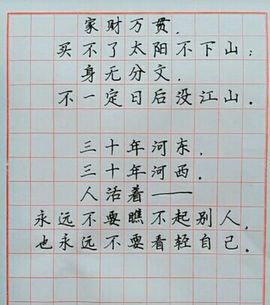 家财万贯.
买不了太阳不下山;
身无分文.
不一定日后没江山.
三十年河东.
三十年河西.
人活着——
永远不要瞧不起别人.
也永远不要看轻自己.